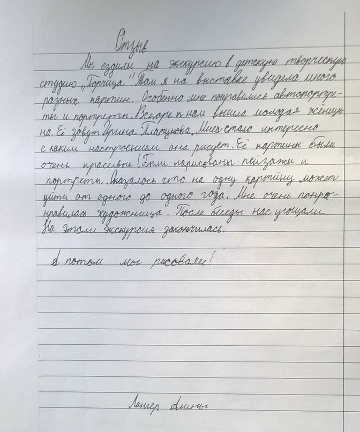 Отзыв
Мы ездили на экскурсию в детскую творческую
студию "Горчица". Там я на выставке увидела много
разных картин. Особенно мне понравились автопортре-
ты и портреты. Вскоре к нам вышла молодая женщи-
на. Её зовут Арина Мне стало интересно
с каким настроением она рисует. Её картины были
очень красивые! Были нарисованы пейзажи и
портреты. Оказалось что на одну картину может
уйти от одного до одного года. Мне очень понра-
нравилась художница. После беседы нас угощали.
На этом экскурсия закончилась.
А потом мы рисовали!